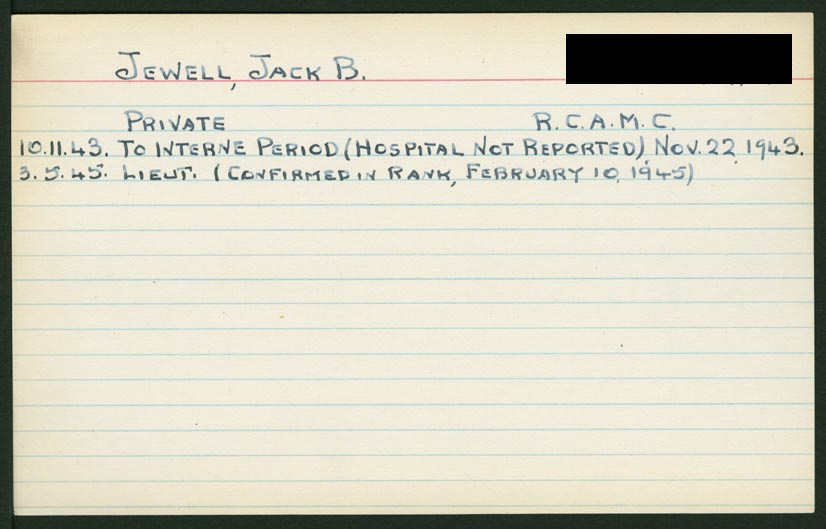 JEWELL, JACK B.
PRIVATE R.C.A.M.C.
10.11.43. TO INTERNE PERIOD (HOSPITAL NOT REPORTED), NOV. 22, 1943.
3.5.45. LIEUT. (CONFIRMED IN RANK, FEBRUARY 10, 1945)